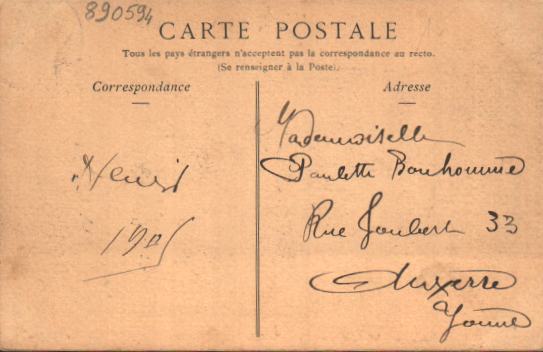 890594
CARTE POSTALE
Tous les pays étrangers n'acceptent pas la correspondance au recto.
(Se renseigner à la Poste).
Correspondance
Adresse
Henri
1905
Mademoiselle
Paulette Bonhomme
Rue Joubert 33
Auxerre
Yonne